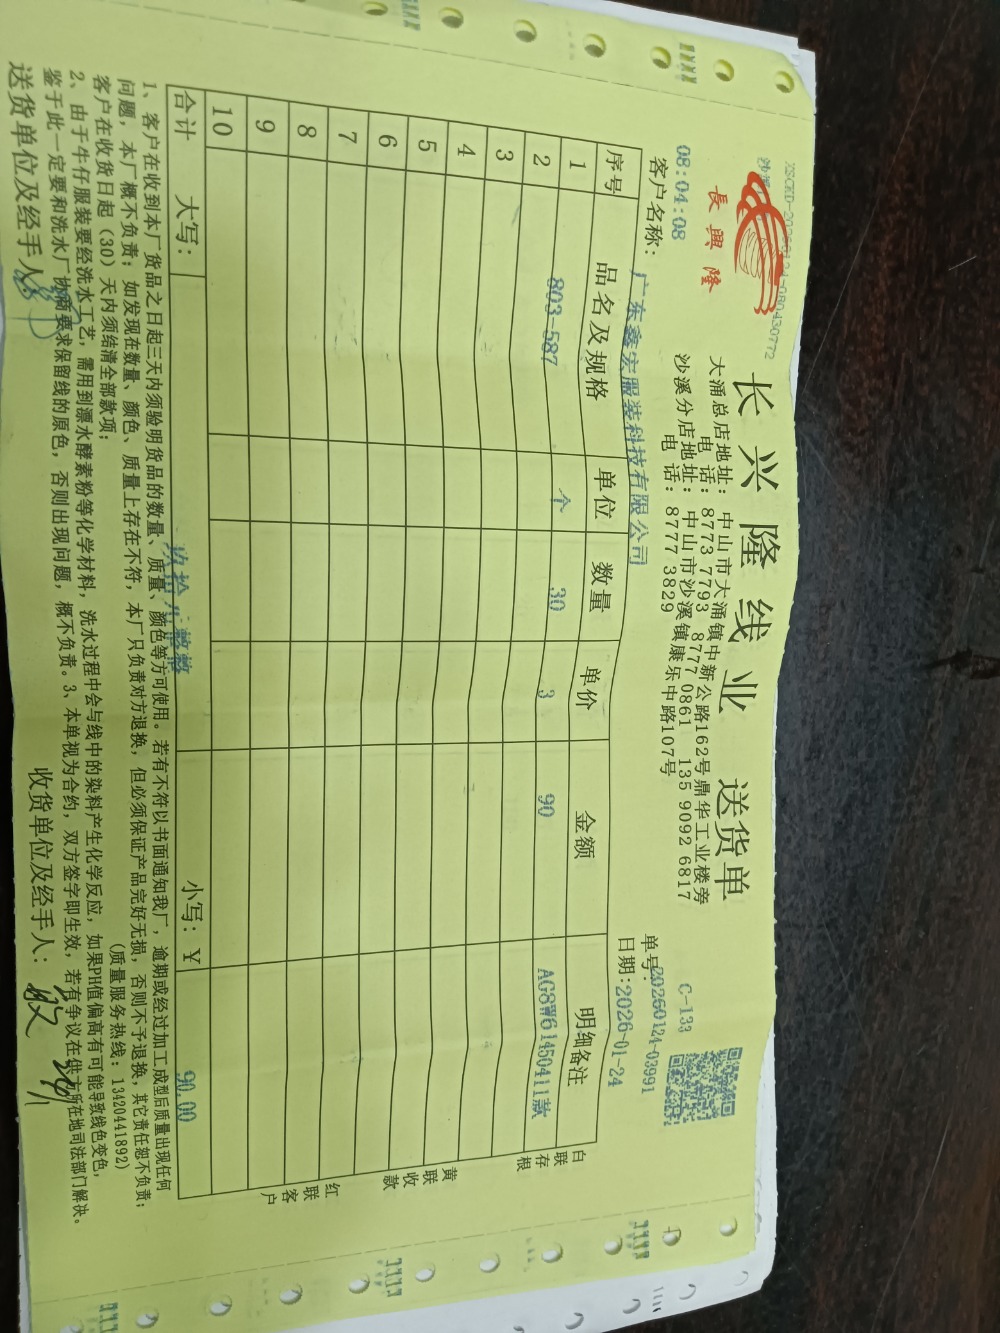 長興隆
长兴隆线业 送货单
大涌总店地址：中山市大涌镇中新公路162号鼎华工业楼旁
电 话：8773 7793 8777 0861 135 9092 6817
沙溪分店地址：中山市沙溪镇康乐中路107号
电 话：8777 3829
C-133
08:04:08
单号:20260124-03991
客户名称：广东鑫宏服装科技有限公司
日期:2026-01-24
序号 品名及规格 单位 数量 单价 金额 明细备注
1 803-587 个 30 3 90 AG8W61450411款
2
3
4
5
6
7
8
9
10
合计 大写： 玖拾元整 小写：￥ 90.00
白联存根
黄联收款
红联客户
1、客户在收到本厂货品之日起三天内须验明货品的数量、质量、颜色等方可使用。若有不符以书面通知我厂，逾期或经过加工成型后质量出现任何
问题，本厂概不负责；如发现在数量、颜色、质量上存在不符，本厂只负责对方退换，但必须保证产品完好无损，否则不予退换，其它责任恕不负责；
客户在收货日起（30）天内须结清全部款项； （质量服务热线：13420441892）
2、由于牛仔服装要经洗水工艺，需用到漂水酵素粉等化学材料，洗水过程中会与线中的染料产生化学反应，如果PH值偏高有可能导致线色变色，
鉴于此一定要和洗水厂协商要求保留线的原色，否则出现问题，概不负责。3、本单视为合约，双方签字即生效，若有争议在供方所在地司法部门解决。
送货单位及经手人： 收货单位及经手人：